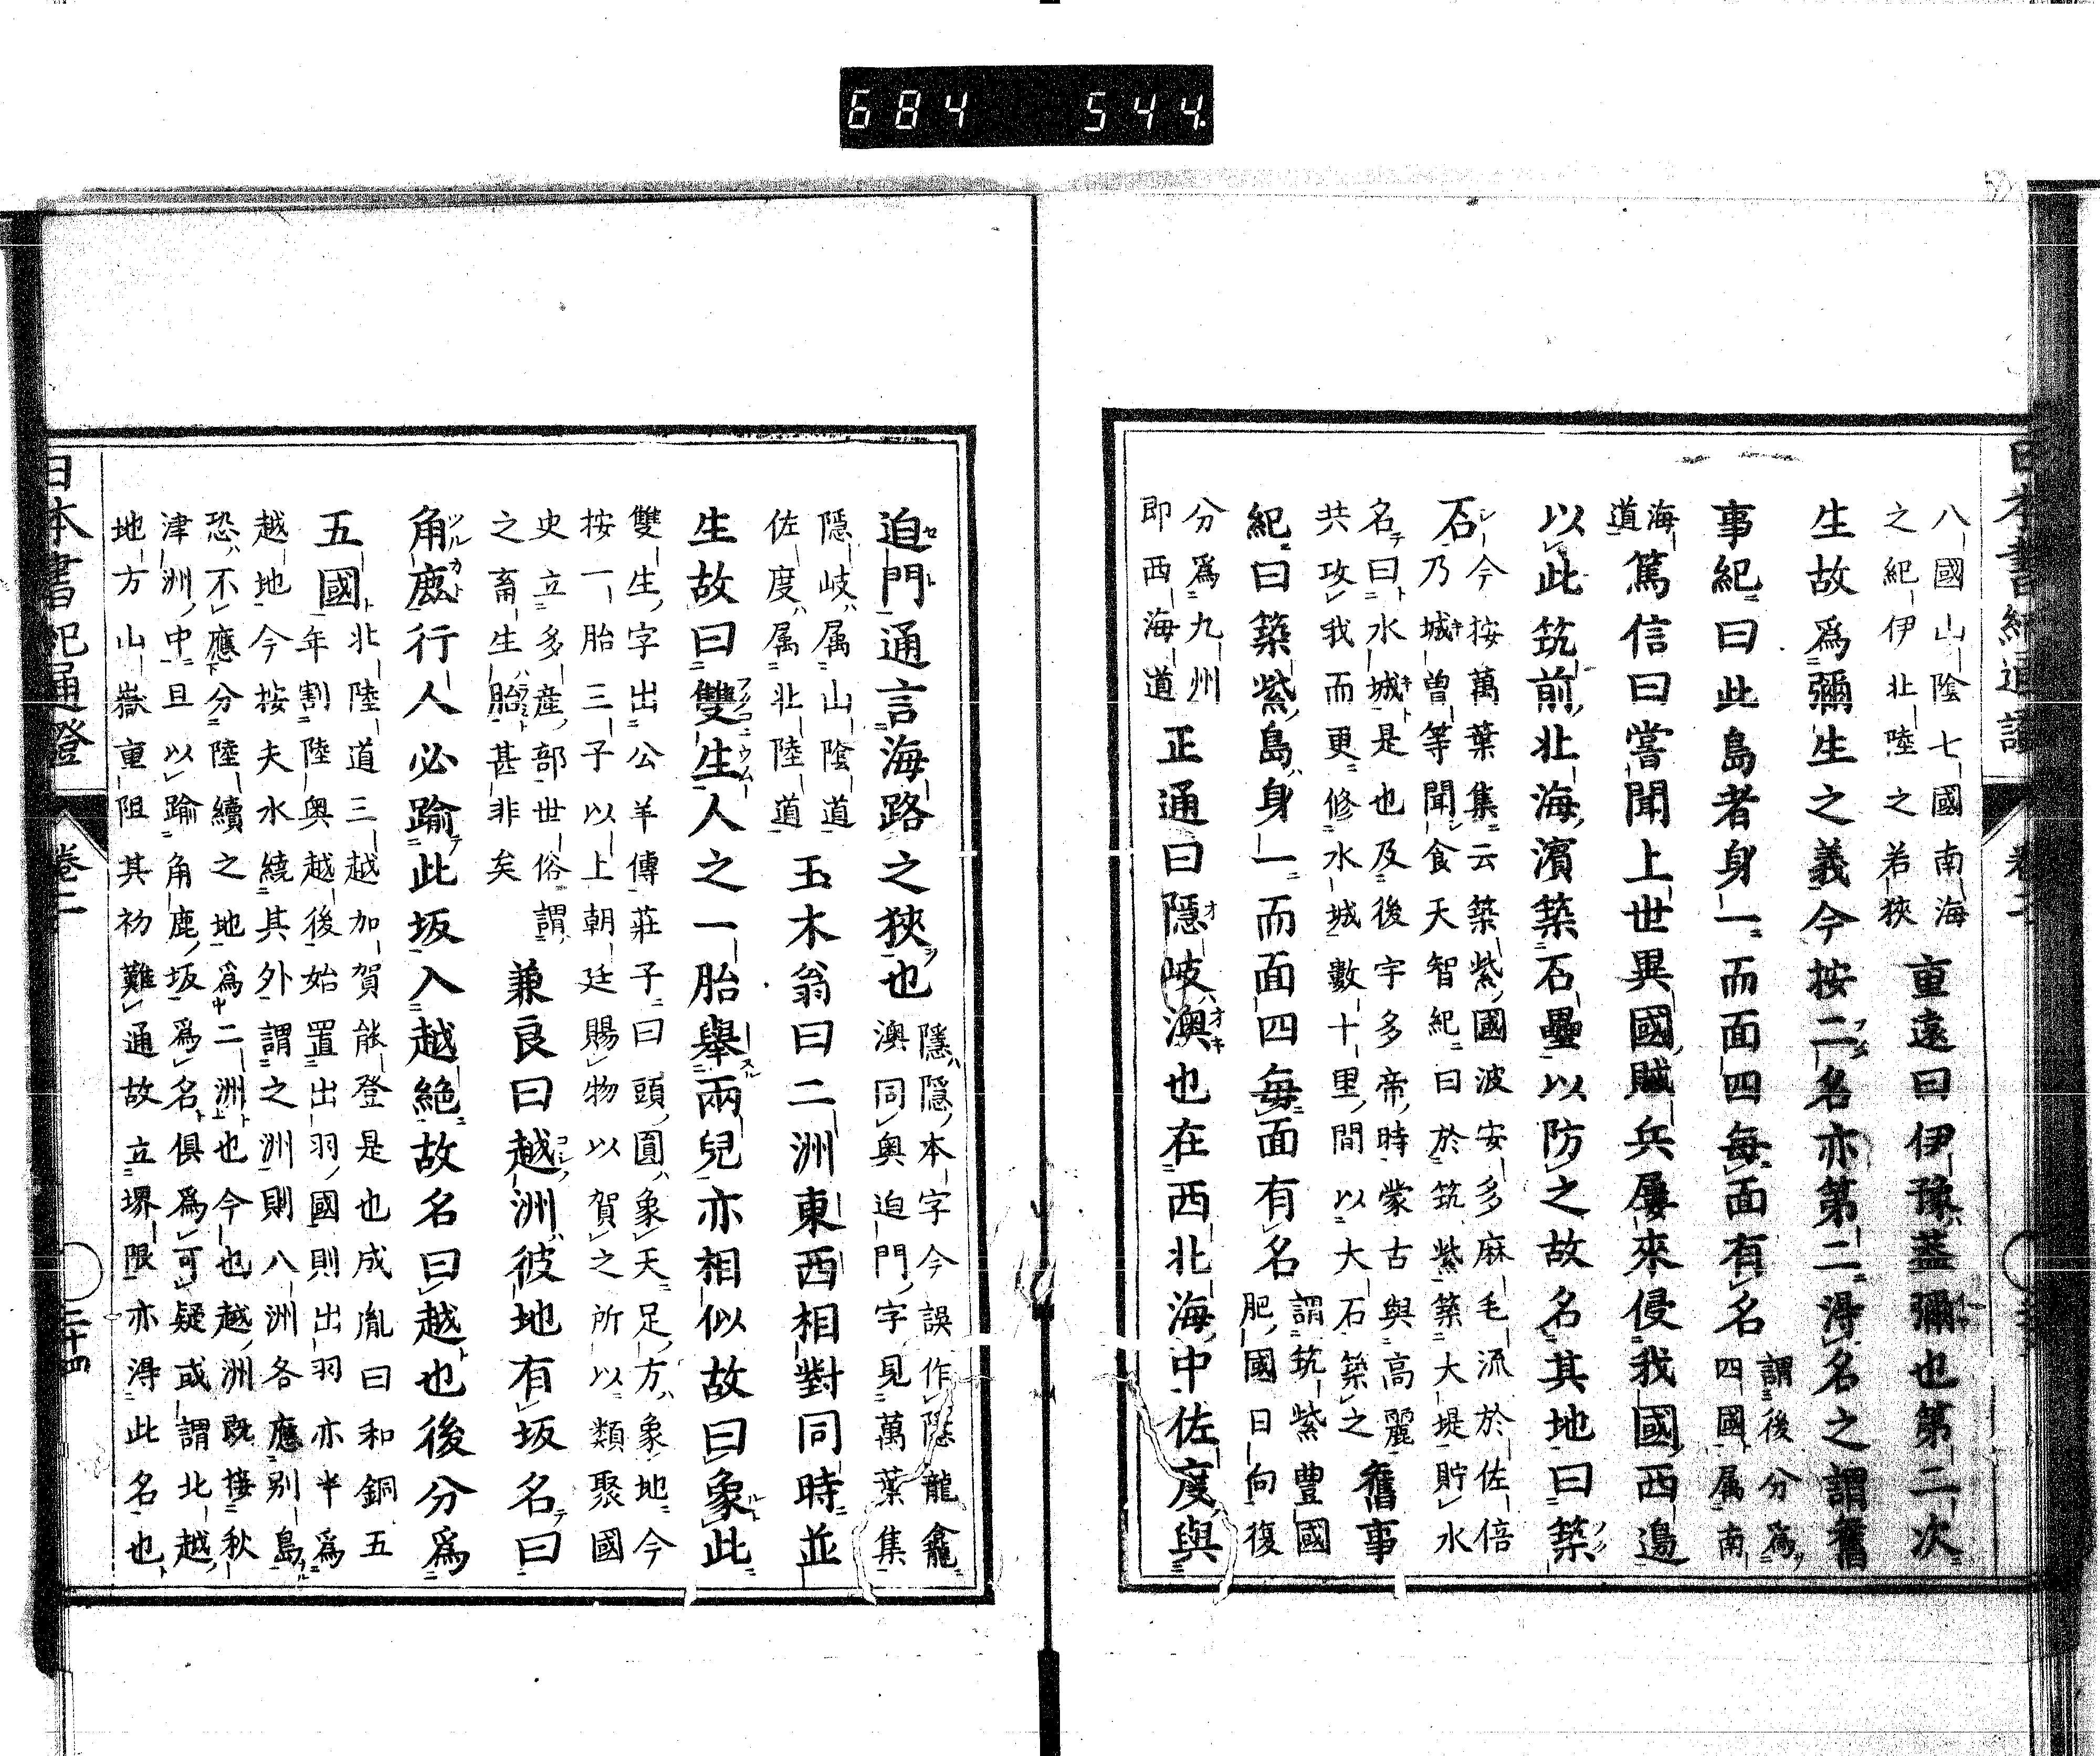 684 544
八國山陰七國南海
之紀伊北陸之若狹
重遠曰伊豫蓋彌也第二次
生故爲彌生之義今按二名亦第二淂名之謂舊
事紀曰此島者身一而面四每面有名
謂後分爲
四國属南
海
道
篤信曰嘗聞上世異國賊兵屢來侵我國西邊
以此筑前北海濱築石壘以防之故名其地曰築
石
今按萬葉集云築紫國波安多麻毛流於佐倍
乃城曾等聞食天智紀曰於筑紫築大堤貯水
名曰水城是也及後宇多帝時蒙古與高麗
共攻我而更修水城數十里間以大石築之
舊事
紀曰築紫島身一而面四每面有名
謂筑紫豐國
肥國日向復
分爲九州
即西海道
正通曰隱岐澳也在西北海中佐度與
迫門通言海路之狹也
隱隱本字今誤作隠龍龕
澳同奥迫門字見萬葉集
隱岐属山陰道
佐度属北陸道
玉木翁曰二洲東西相對同時並
生故曰雙生人之一胎舉兩兒亦相似故曰象此
雙生字出公羊傳莊子曰頭圓象天足方象地今
按一胎三子以上朝廷賜物以賀之所以類聚國
史立多産部世俗謂
之畜生胎甚非矣
兼良曰越洲彼地有坂名曰
角鹿行人必踰此坂入越絶故名曰越也後分爲
五國
北陸道三越加賀能登是也成胤曰和銅五
年割陸奥越後始置出羽國則出羽亦半爲
越地今按夫水繞其外謂之洲則八洲各應别島
恐不應分陸續之地爲二洲也今也越洲既接秋
津洲中且以踰角鹿坂爲名俱爲可疑或謂北越
地方山嶽重阻其初難通故立堺限亦淂此名也
日本書紀通證
卷二
三十四